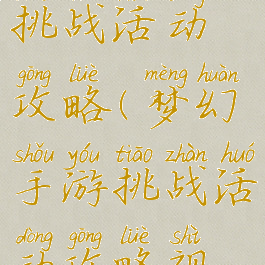 挑战活动
gōng lüè mèng huàn
攻略(梦幻
shǒu yóu tiāo zhàn huó
手游挑战活
dòng gōng lüè shì
动攻略视